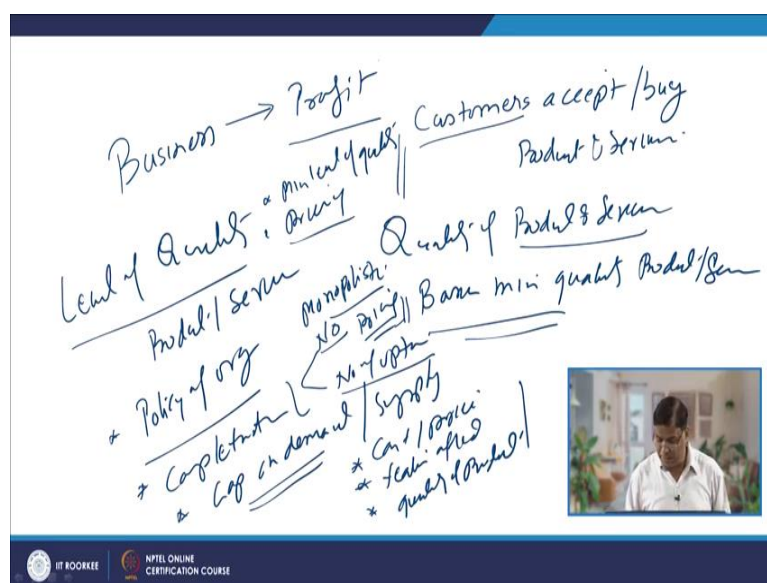 Business → Profit
Customers accept/buy
Product & Services
Level of Quality
* min level of quality
* Pricing
Product/Service
Quality of Product & Service
monopolistic
NO Pricing
Basic min quality Product/Service
No of option
* Policy of org
* 
* Gap in demand/Supply
* Cost/price
* 
* quality of Product
IIT ROORKEE
NPTEL ONLINE
CERTIFICATION COURSE